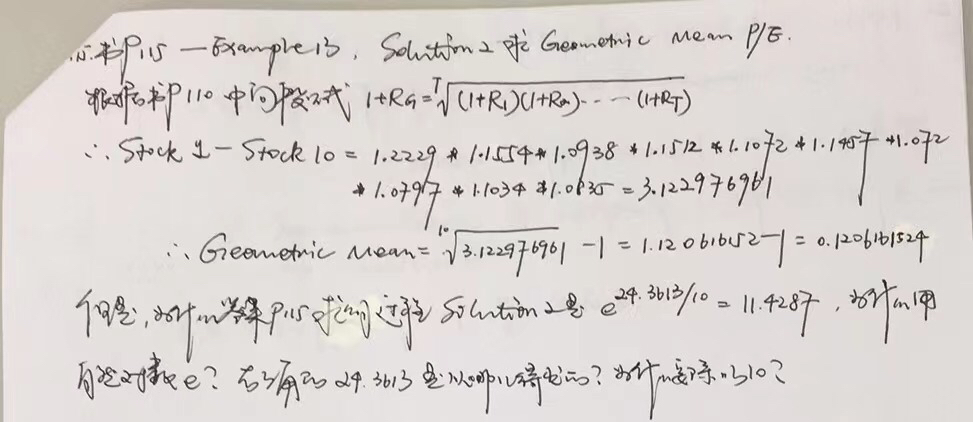 书P115 — Example 13, Solution 2 求 Geometric Mean P/E.
根据书P110 中间段公式 1+RG = T√(1+R1)(1+R2)‑‑‑ ‑‑‑(1+RT)
∴ Stock 1 - Stock 10 = 1.2229 * 1.1554 * 1.0938 * 1.1512 * 1.1072 * 1.1457 * 1.072
* 1.0797 * 1.1034 * 1.0835 = 3.122976961
∴ Geometric Mean = 10√3.122976961 - 1 = 1.120616152 - 1 = 0.1206161524
但是, 为什么答案P115 求的过程 Solution 2 是 e^24.3613/10 = 11.4287, 为什么用
自然对数 e? 右上角的 24.3613 是从哪儿得出的? 为什么要除以10?